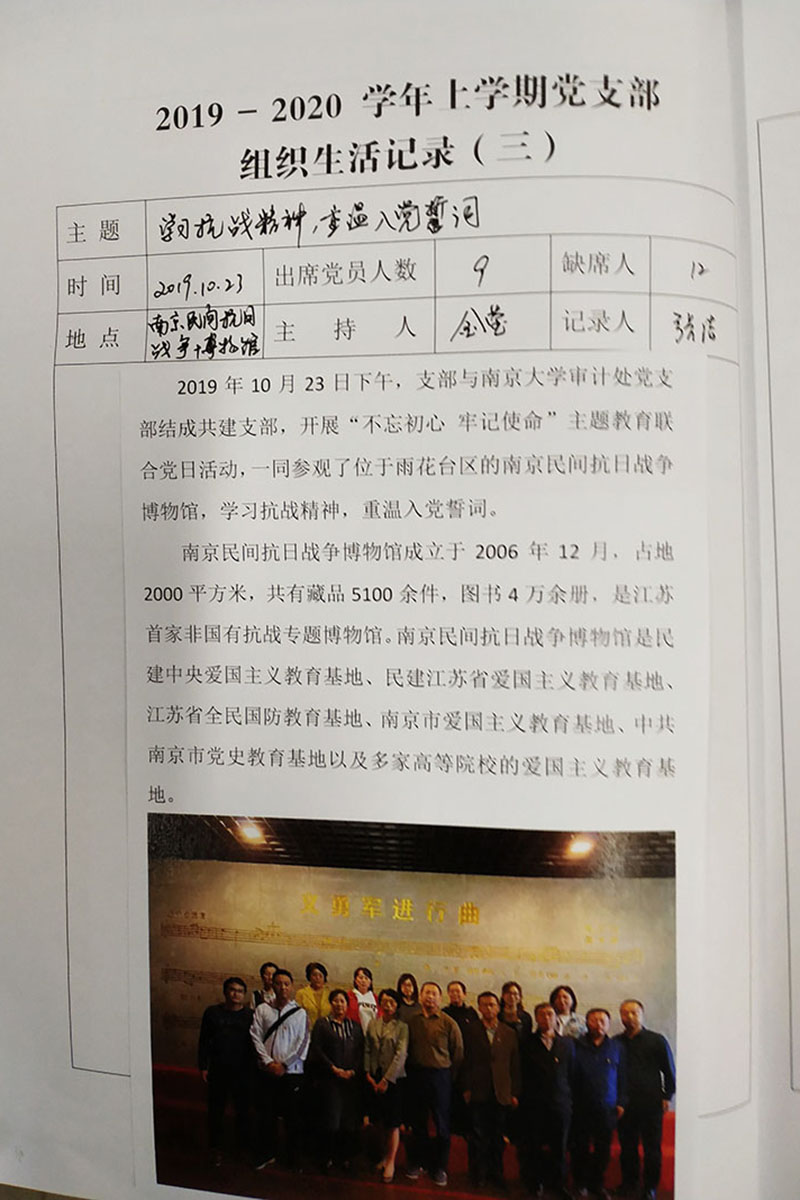 2019－2020 学年上学期党支部
组织生活记录（三）
主 题 学习抗战精神，重温入党誓词
时 间 2019.10.23 出席党员人数 9 缺席人 12
地 点 南京民间抗日战争博物馆 主 持 人 记录人
2019 年 10 月 23 日下午，支部与南京大学审计处党支
部结成共建支部，开展“不忘初心 牢记使命”主题教育联
合党日活动，一同参观了位于雨花台区的南京民间抗日战争
博物馆，学习抗战精神，重温入党誓词。
南京民间抗日战争博物馆成立于 2006 年 12 月，占地
2000 平方米，共有藏品 5100 余件，图书 4 万余册，是江苏
首家非国有抗战专题博物馆。南京民间抗日战争博物馆是民
建中央爱国主义教育基地、民建江苏省爱国主义教育基地、
江苏省全民国防教育基地、南京市爱国主义教育基地、中共
南京市党史教育基地以及多家高等院校的爱国主义教育基
地。
义勇军进行曲